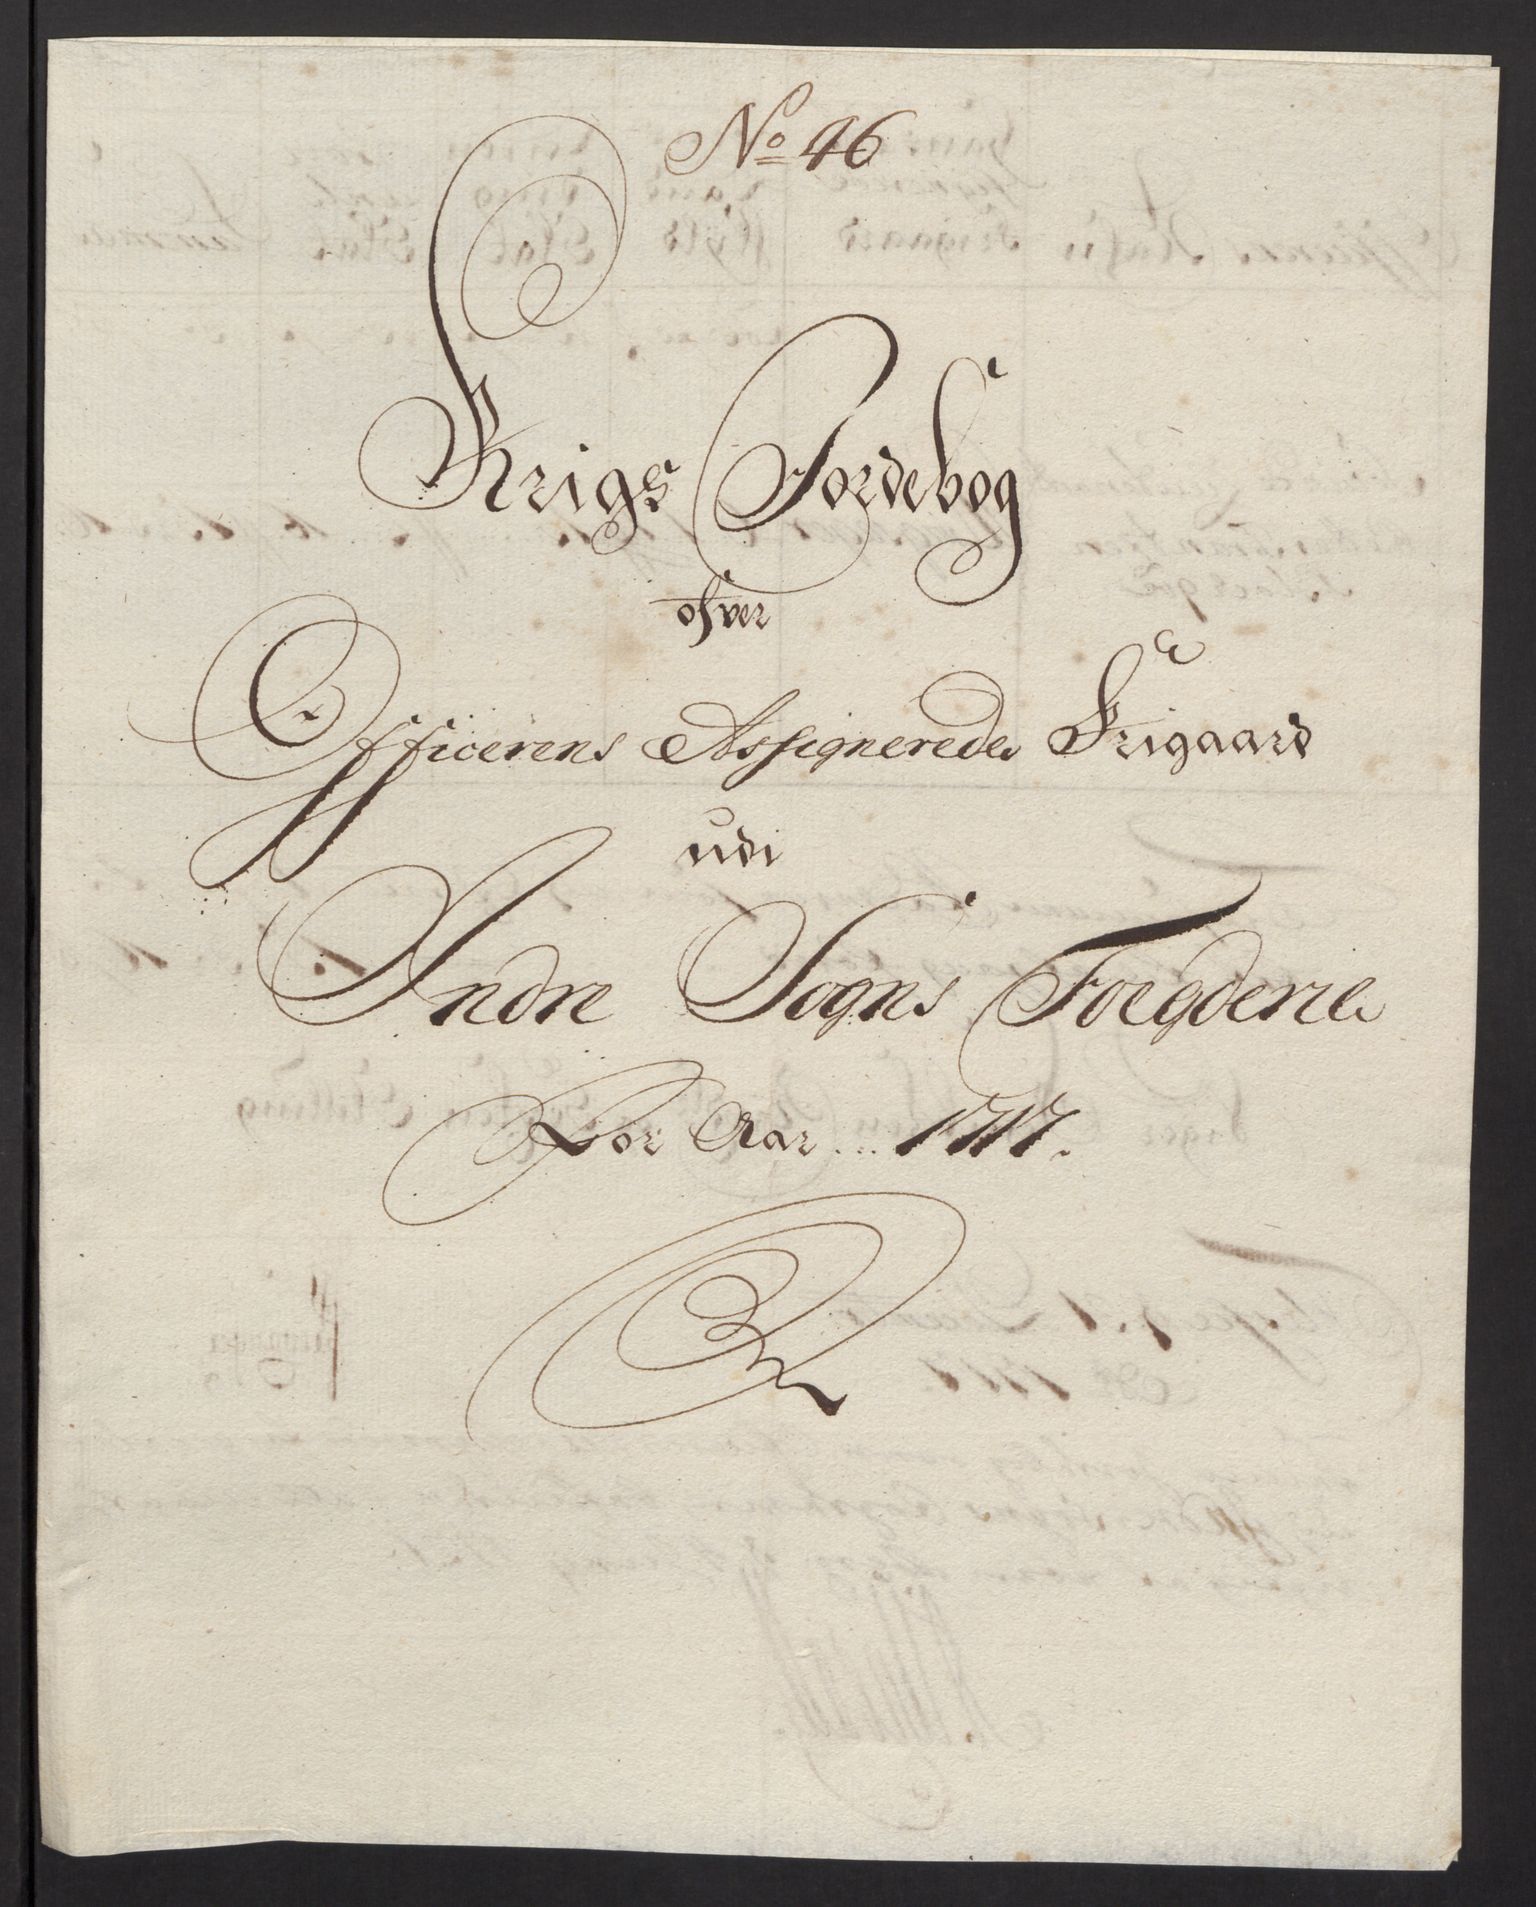 No 46
Krigs Jordebog
ofver
Officerens Assignerede Frigaard
udi
Indre Sogns Foegderie
for Aar ... 1717.